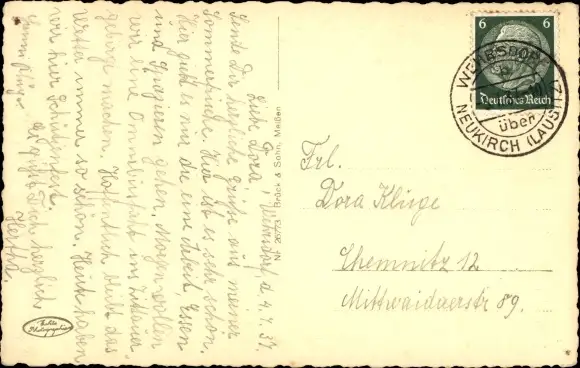 Wehrsdorf, d. 4.7.37.
Liebe Dora!
Sende Dir herzliche Grüße aus meiner
Sommerfrische. Hier ist es sehr schön.
Hier geht es mir wie eine Made, Essen
und Spazieren gehen. Morgen wollen
wir eine Omnibusfahrt ins Zittauer
gebirge machen. Hoffentlich bleibt das
Wetter immer so schön. Heut haben
wir hier Schützenfest.
Es grüßt Dich herzlichst
Hertha.
1N 26723 Brück & Sohn, Meißen
Echte
Photographie
6 6
Deutsches Reich
WEHRSDORF
über
NEUKIRCH (LAUSITZ)
Frl.
Dora Kluge
Chemnitz 12
Mittwaidaerstr 89.